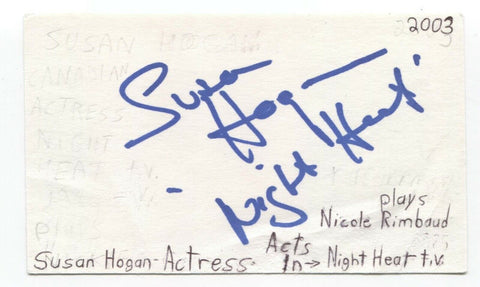 2003
SUSAN HOGAN
CANADIAN
ACTRESS
NIGHT
HEAT t.v.
Susan
Hogan
"Night Heat"
plays
Nicole Rimbaud
Susan Hogan-Actress Acts In → Night Heat t.v.